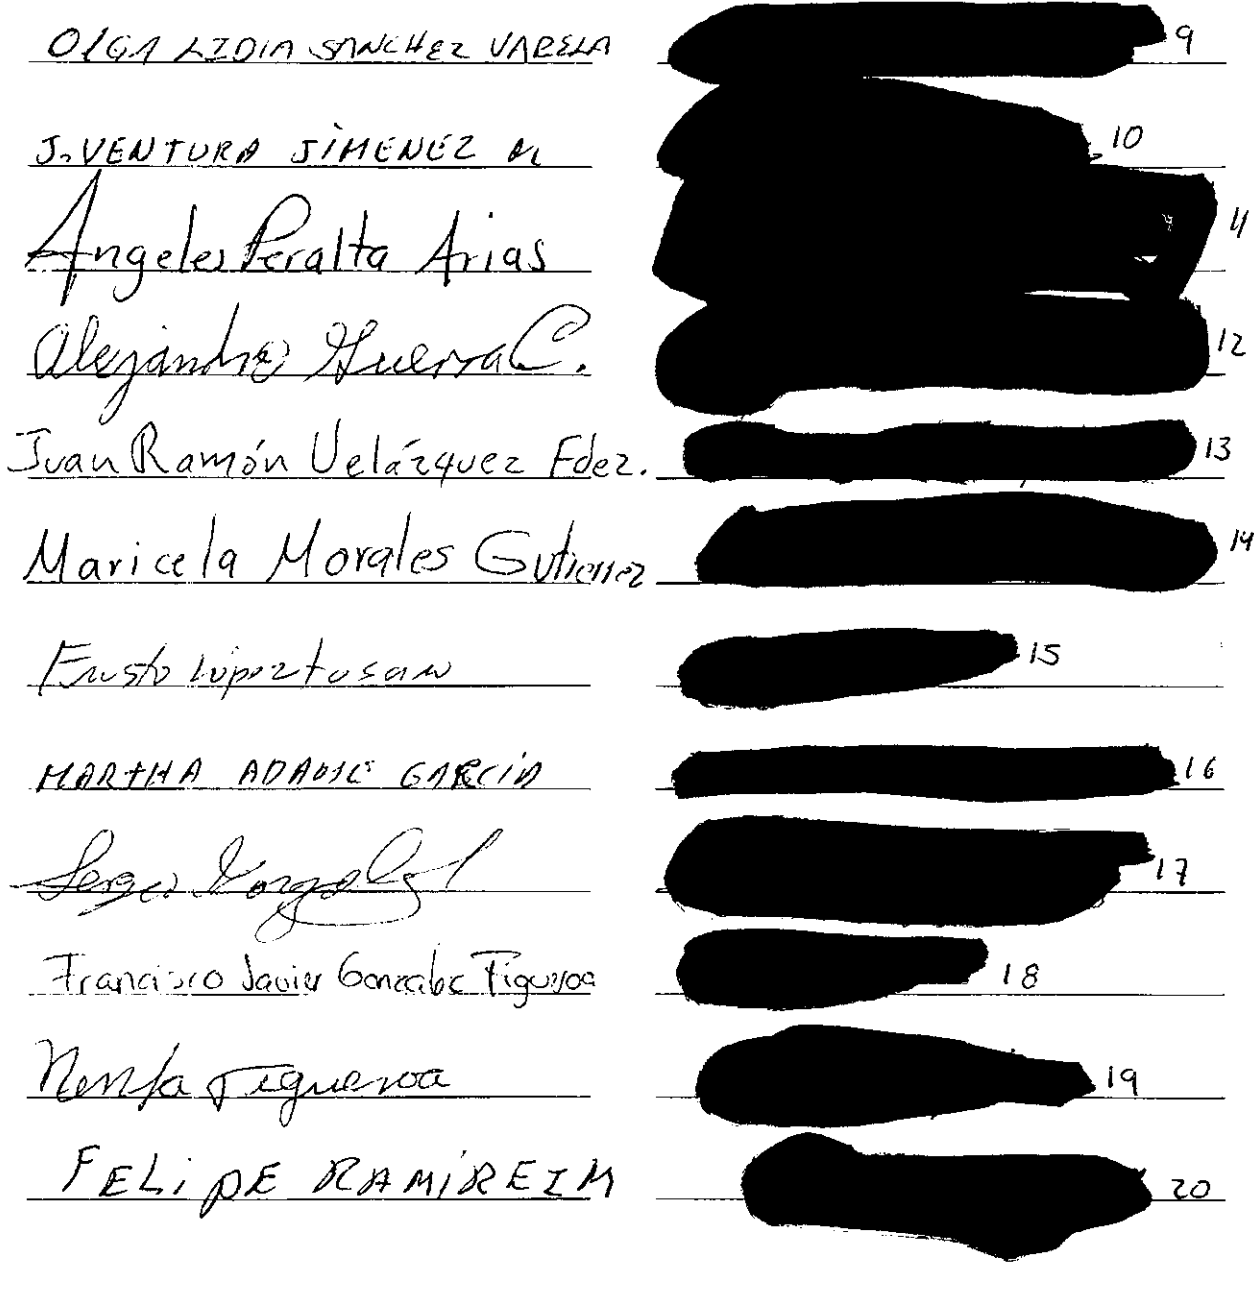 OLGA LIDIA SANCHEZ VARELA 9
J. VENTURA JIMENEZ M 10
Angeles Peralta Arias 11
Alejandro Guerra C. 12
Juan Ramón Velázquez Fdez. 13
Maricela Morales Gutierrez 14
Fausto 15
MARTHA ADAME GARCÍA 16
Sergio 17
Francisco Javier Gonzalez Figueroa 18
Figueroa 19
FELIPE RAMÍREZ M 20